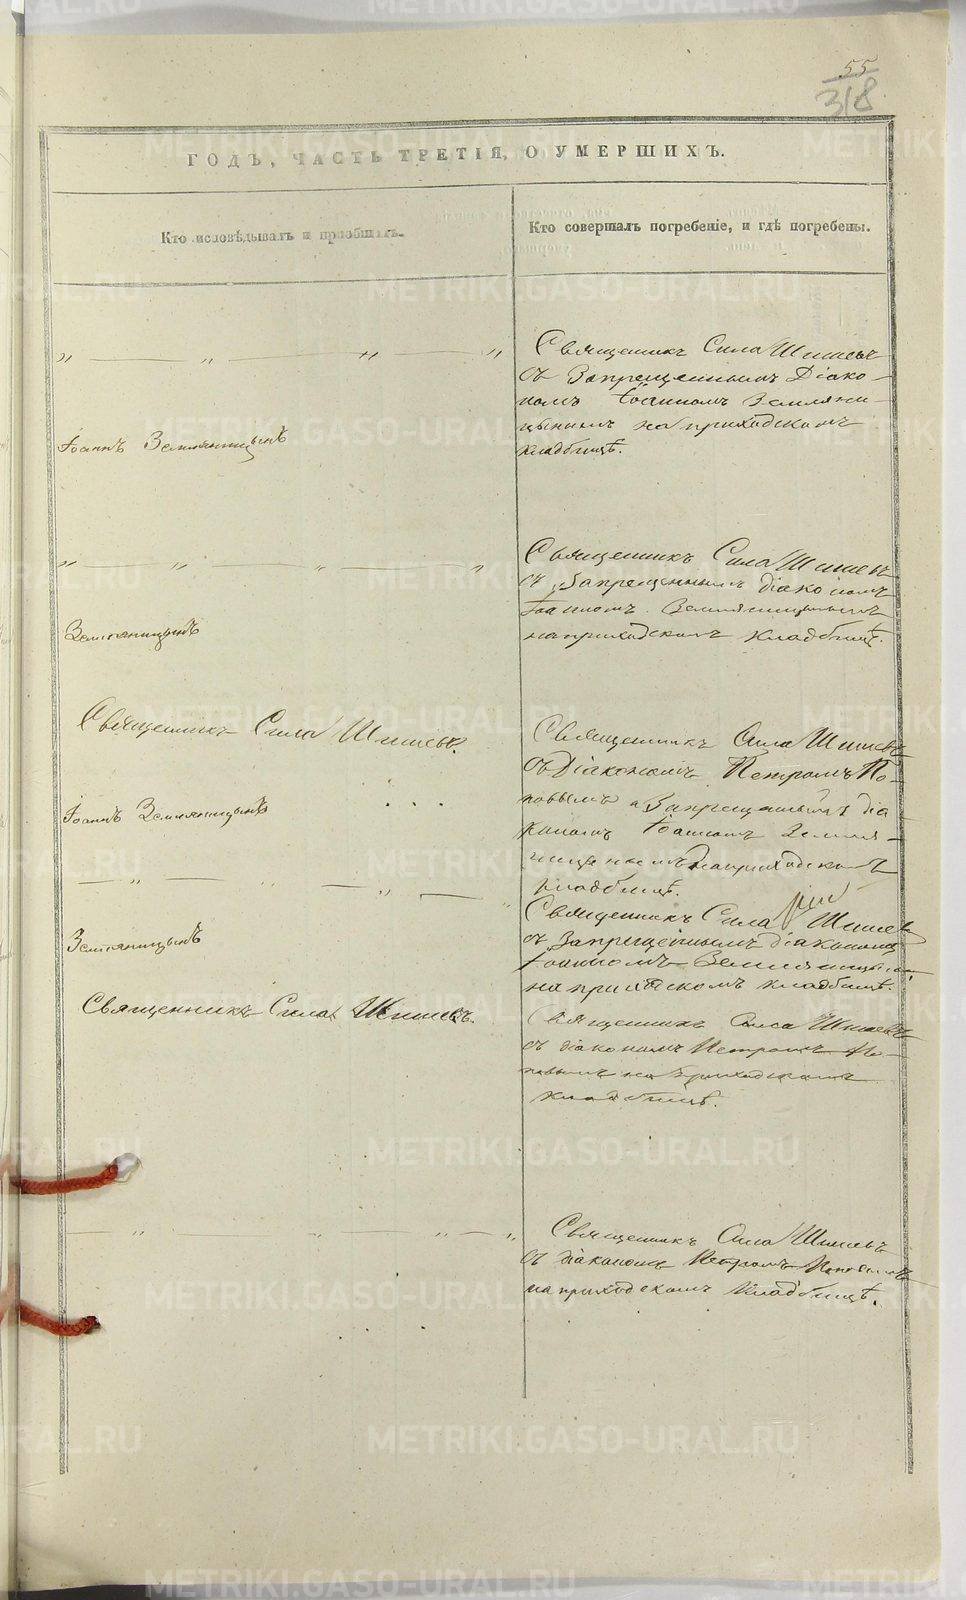 55
318
ГОДЪ, ЧАСТЬ ТРЕТІЯ, О УМЕРШИХЪ.
Кто исповѣдывалъ и пріобщалъ.
Кто совершалъ погребеніе, и гдѣ погребены.
Священникъ Сила Шишевъ
съ Запрещеннымъ Діако-
номъ Іоанномъ Земляни-
цынымъ на приходскомъ
кладбищѣ.
Іоаннъ Земляницынъ
Священникъ Сила Шишевъ
съ Запрещеннымъ діакономъ
Іоанномъ Земляницынымъ
на приходскомъ кладбищѣ.
Земляницынъ
Священникъ Сила Шишевъ.
Іоаннъ Земляницынъ
Священникъ Сила Шишевъ
съ Діакономъ Петромъ По-
повымъ и Запрещеннымъ діа-
кономъ Іоанномъ Земля-
ницынымъ на приходскомъ
кладбищѣ.
Земляницынъ
Священникъ Сила Шишевъ
съ Запрещеннымъ діакономъ
Іоанномъ Земляницынымъ
на приходскомъ кладбищѣ.
Священникъ Сила Шишевъ.
Священникъ Сила Шишевъ
съ діакономъ Петромъ По-
повымъ на приходскомъ
кладбищѣ.
Священникъ Сила Шишевъ
съ діакономъ Петромъ Поповымъ
на приходскомъ кладбищѣ.
METRIKI.GASO-URAL.RU